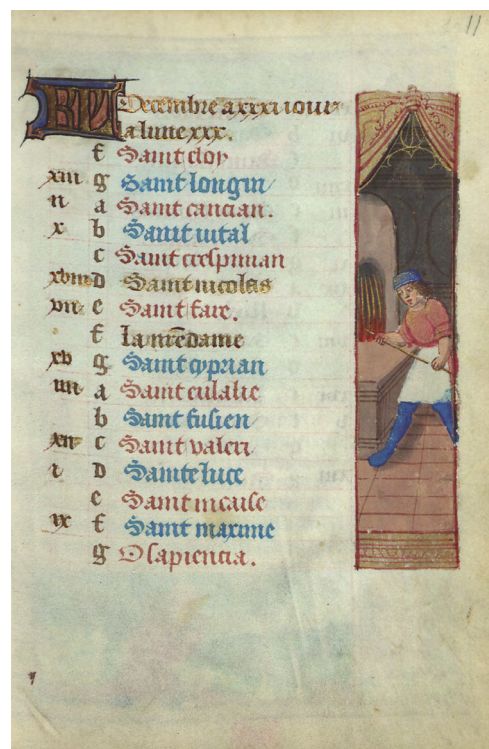 11
KL Decembre a xxxi iour
la lune xxx.
f Saint eloy
xiii g Saint longin
ii a Saint cancian.
x b Saint uital
c Saint crespinian
xviii D Saint nicolas
vii e Saint fare.
f La nr̄e dame
xv g Saint cyprian
iiii a Saint eulalie
b Saint fusien
xii c Saint valeri
i D Sainte luce
e Saint nicaise
ix f Saint maxime
g O sapiencia.